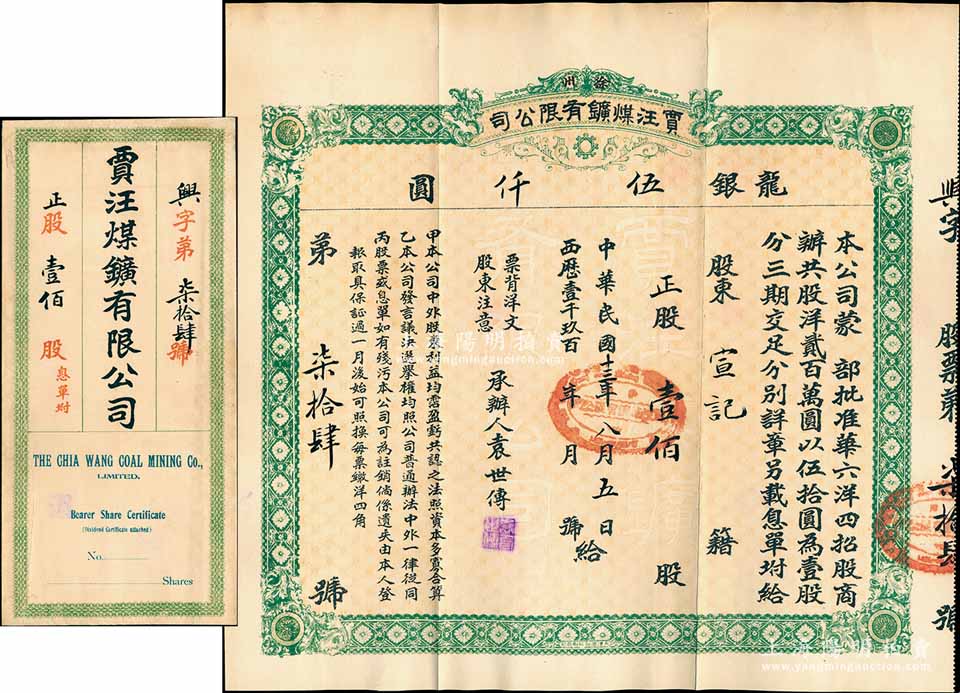 興字第 柒拾肆 號
賈汪煤鑛有限公司
正股 壹佰 股 息單坿
THE CHIA WANG COAL MINING Co.,
LIMITED.
Bearer Share Certificate
(Dividend Certificate attached)
No.
Shares
徐州
賈汪煤鑛有限公司
龍銀伍仟圓
本公司蒙 部批准華六洋四招股商
辦共股洋貳百萬圓以伍拾圓為壹股
分三期交足分別詳章另載息單坿給
股東 宣記 籍
正股 壹佰 股
中華民國十三年八月五日
西歷壹千玖百 年 月 號給
承辦人袁世傳
票背洋文
股東注意
甲本公司中外股票利益均霑盈虧共認之法照資本多寡合算
乙本公司發言議決選舉權均照公司普通辦法中外一律從同
丙股票或息單如有殘污本公司可為註銷倘係遺失由本人登
報取具保証過一月後始可照換每票繳洋四角
第 柒拾肆 號
興字 股票第 柒拾肆 號
上海陽明拍賣
www.yangmingauction.com